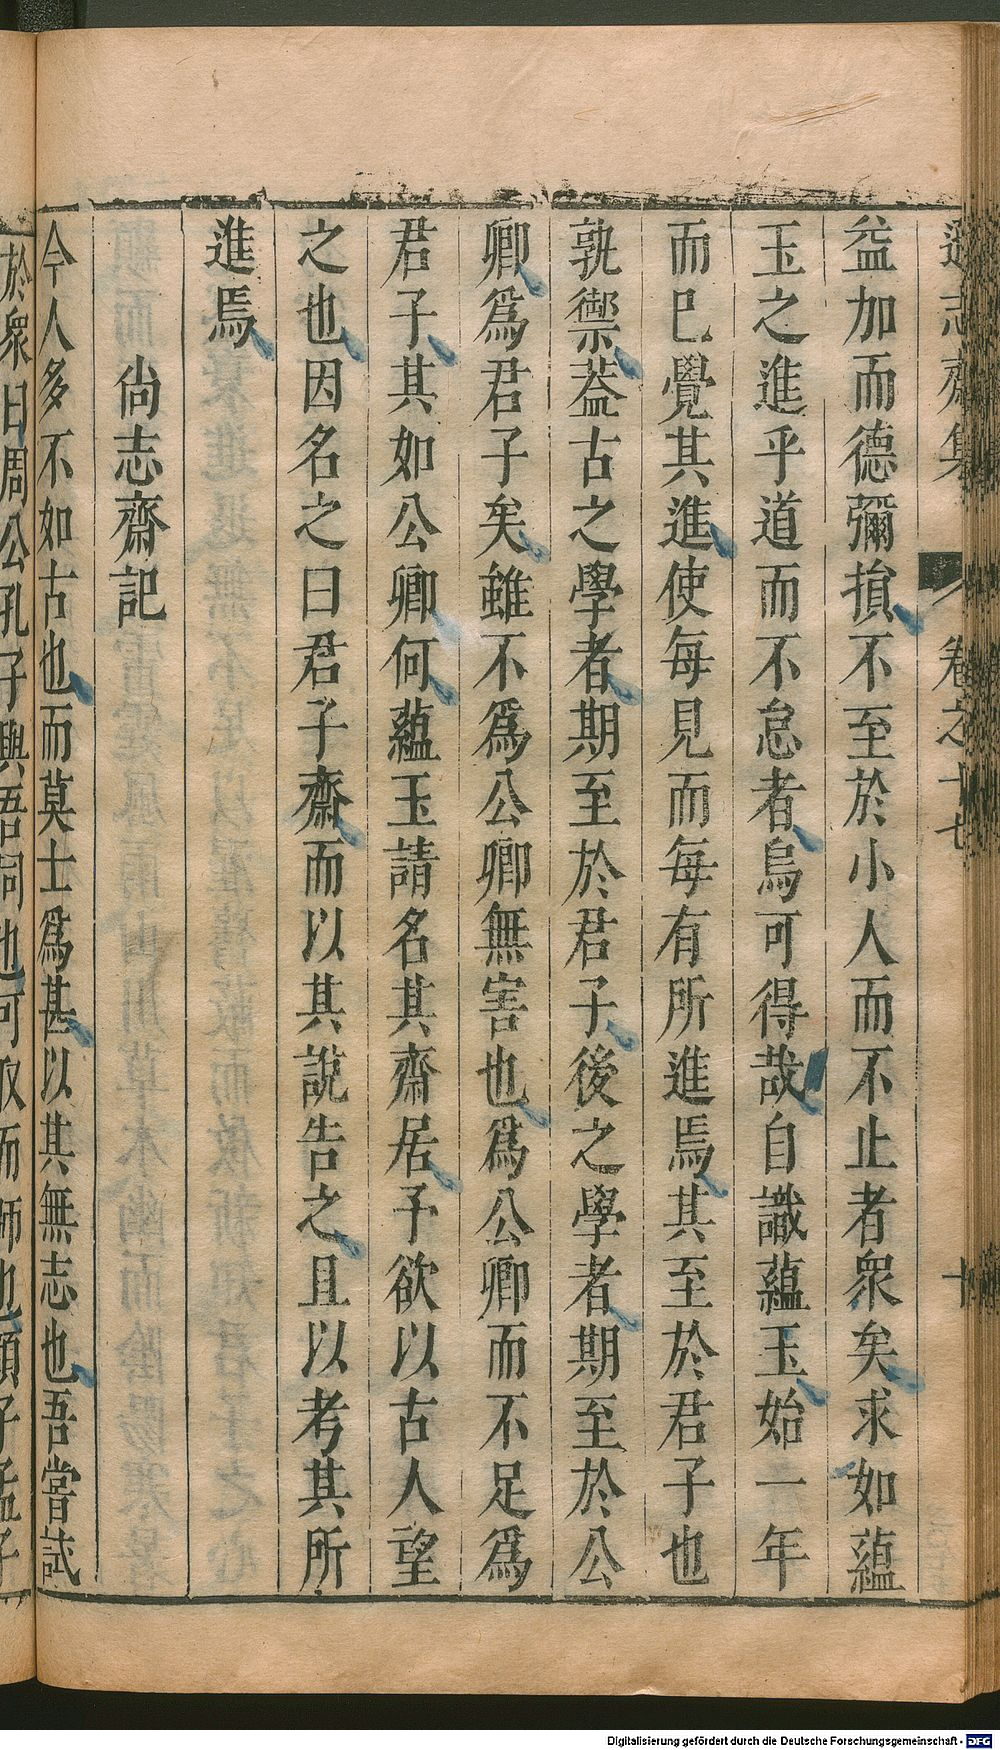 遜志齋集 卷之十七 十
益加而德彌損不至於小人而不止者衆矣求如蘊
玉之進乎道而不怠者烏可得哉自識蘊玉始一年
而巳覺其進使每見而每有所進焉其至於君子也
孰禦葢古之學者期至於君子後之學者期至於公
卿爲君子矣雖不爲公卿無害也爲公卿而不足爲
君子其如公卿何蘊玉請名其齋居予欲以古人望
之也因名之曰君子齋而以其說告之且以考其所
進焉
尙志齋記
今人多不如古也而莫士爲甚以其無志也吾嘗試
於衆曰周公孔子與吾同也可取而師也顔子孟子
Digitalisierung gefördert durch die Deutsche Forschungsgemeinschaft - DFG